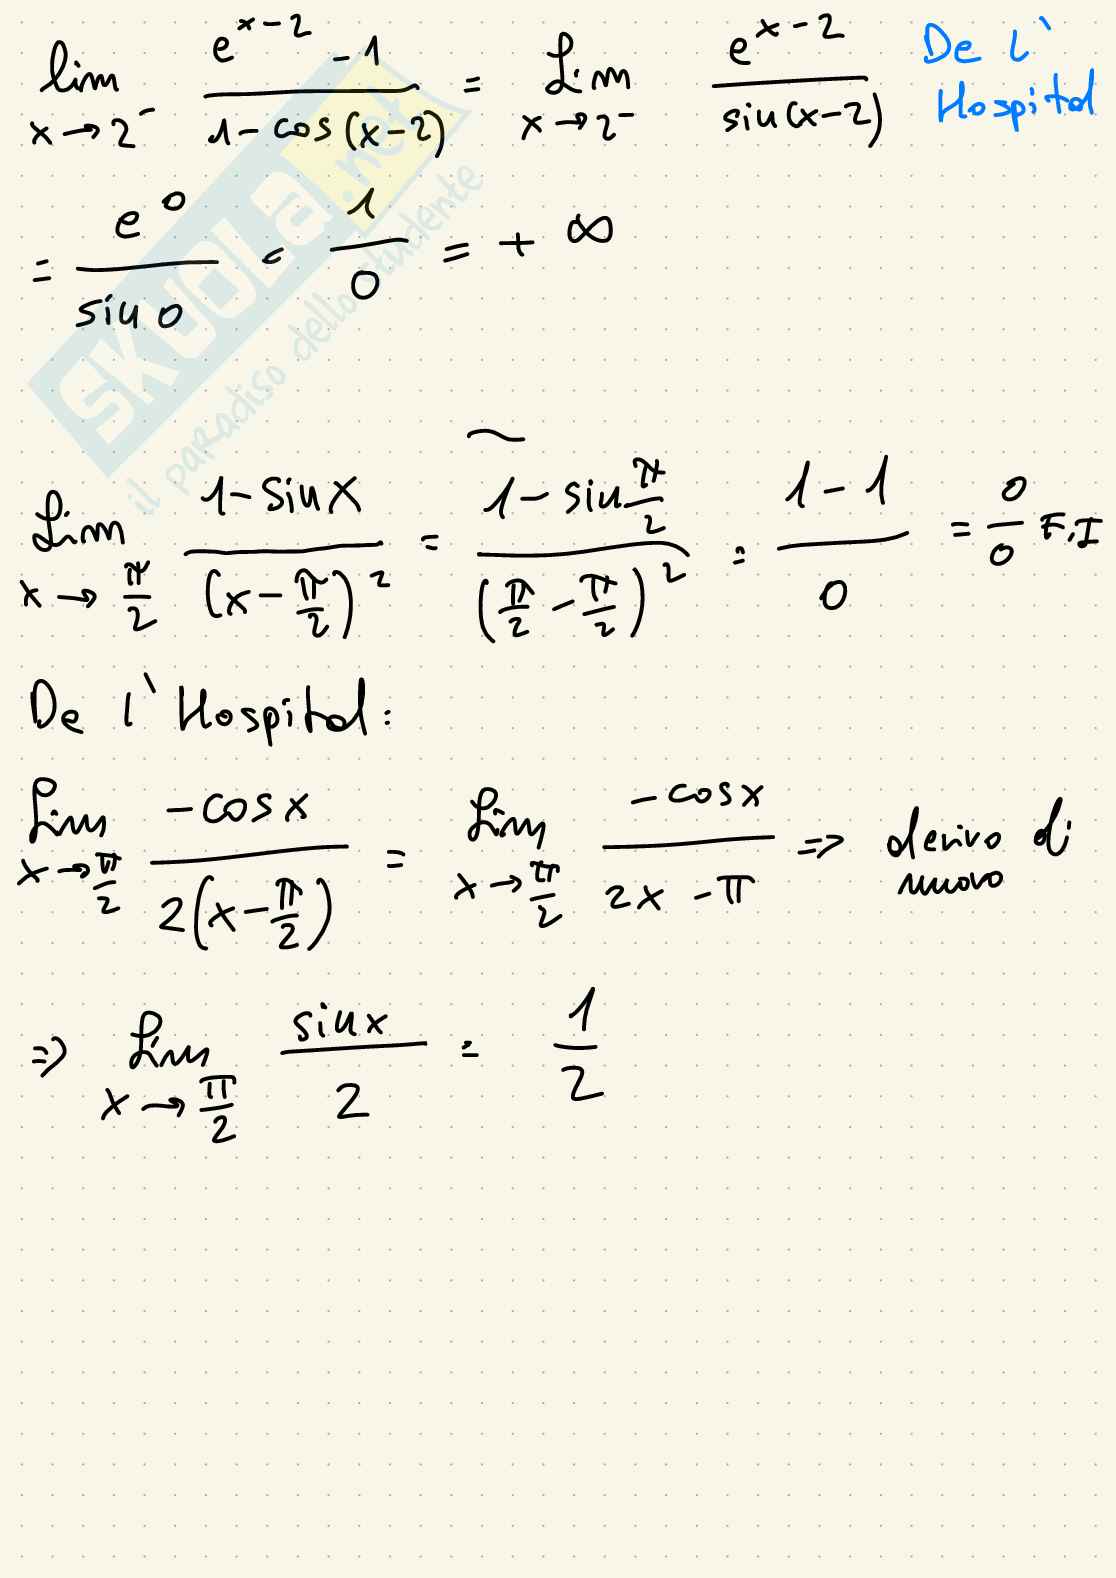 lim x→2⁻ (e^(x-2) - 1)/(1-cos(x-2)) = Lim x→2⁻ e^(x-2)/sin(x-2) De l'
Hospital
= e^0/sin 0 = 1/0 = + ∞
SKUOLA.net
il paradiso dello studente
Lim x→π/2 (1-sin x)/(x-π/2)^2 = (1-sin π/2)/(π/2-π/2)^2 = (1-1)/0 = 0/0 F.I
De l'Hospital:
Lim x→π/2 -cos x/2(x-π/2) = Lim x→π/2 -cos x/(2x-π) => derivo di
nuovo
=> Lim x→π/2 sin x/2 = 1/2